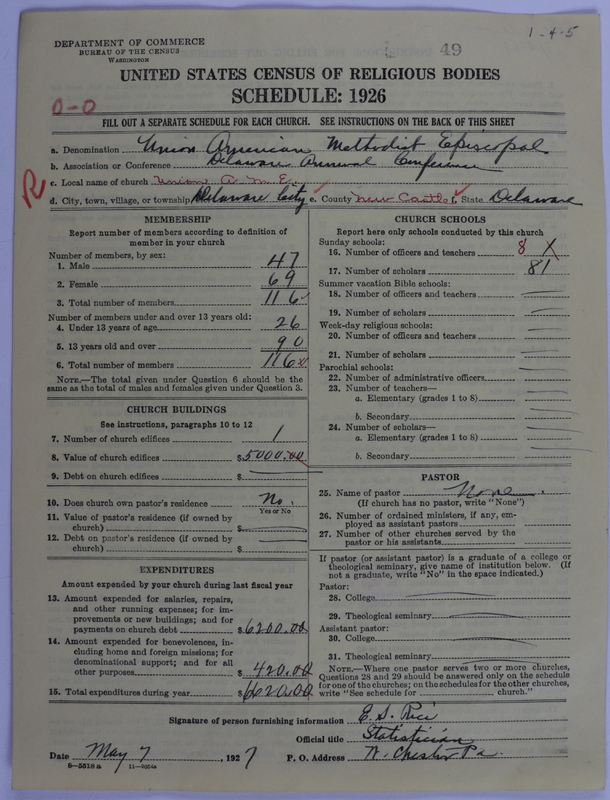 1-4-5
DEPARTMENT OF COMMERCE
BUREAU OF THE CENSUS
WASHINGTON
49
UNITED STATES CENSUS OF RELIGIOUS BODIES
SCHEDULE: 1926
0-0
FILL OUT A SEPARATE SCHEDULE FOR EACH CHURCH. SEE INSTRUCTIONS ON THE BACK OF THIS SHEET
a. Denomination Union American Methodist Episcopal
b. Association or Conference Delaware Annual Conference
R c. Local name of church Union A. M. E.
d. City, town, village, or township Delaware City e. County New Castle f. State Delaware
MEMBERSHIP
Report number of members according to definition of
member in your church
Number of members, by sex:
1. Male 47
2. Female 69
3. Total number of members 116
Number of members under and over 13 years old:
4. Under 13 years of age 26
5. 13 years old and over 90
6. Total number of members 116
NOTE.—The total given under Question 6 should be the
same as the total of males and females given under Question 3.
CHURCH BUILDINGS
See instructions, paragraphs 10 to 12
7. Number of church edifices 1
8. Value of church edifices $5000.00
9. Debt on church edifices $
10. Does church own pastor's residence No.
Yes or No
11. Value of pastor's residence (if owned by
church) $
12. Debt on pastor's residence (if owned by
church) $
EXPENDITURES
Amount expended by your church during last fiscal year
13. Amount expended for salaries, repairs,
and other running expenses; for im-
provements or new buildings; and for
payments on church debt $6200.00
14. Amount expended for benevolences, in-
cluding home and foreign missions; for
denominational support; and for all
other purposes $420.00
15. Total expenditures during year $6620.00
CHURCH SCHOOLS
Report here only schools conducted by this church
Sunday schools:
16. Number of officers and teachers 8 X
17. Number of scholars 81
Summer vacation Bible schools:
18. Number of officers and teachers
19. Number of scholars
Week-day religious schools:
20. Number of officers and teachers
21. Number of scholars
Parochial schools:
22. Number of administrative officers
23. Number of teachers—
a. Elementary (grades 1 to 8)
b. Secondary
24. Number of scholars—
a. Elementary (grades 1 to 8)
b. Secondary
PASTOR
25. Name of pastor None
(If church has no pastor, write "None")
26. Number of ordained ministers, if any, em-
ployed as assistant pastors
27. Number of other churches served by the
pastor or his assistants
If pastor (or assistant pastor) is a graduate of a college or
theological seminary, give name of institution below. (If
not a graduate, write "No" in the space indicated.)
Pastor:
28. College
29. Theological seminary
Assistant pastor:
30. College
31. Theological seminary
NOTE.—Where one pastor serves two or more churches,
Questions 28 and 29 should be answered only on the schedule
for one of the churches; on the schedules for the other churches,
write "See schedule for church."
Signature of person furnishing information E. S. Rice
Official title Statistician
Date May 7, 1927 P. O. Address W. Chester Pa.
8-5518a 11-9024a